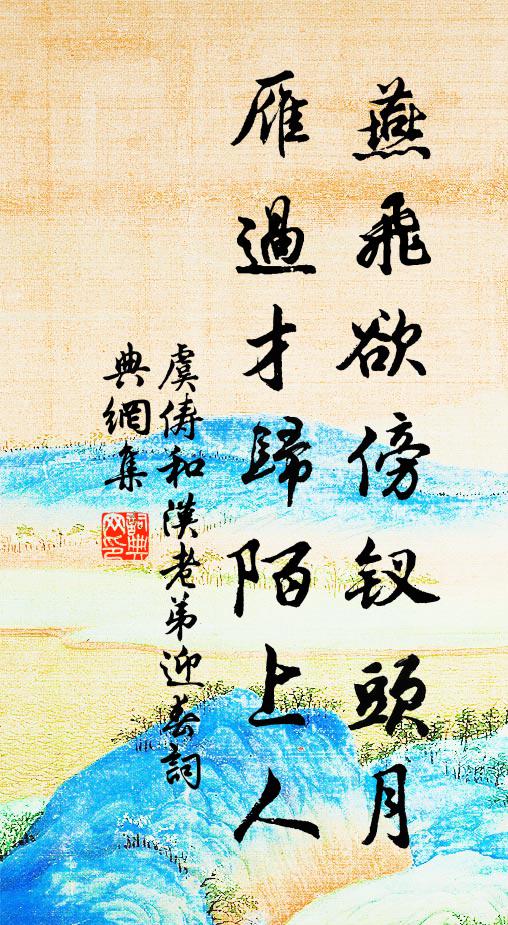 燕飛欲傍釵頭月
雁過才歸陌上人
虞儔和漢老弟迎春詞
典網集
詞典網印